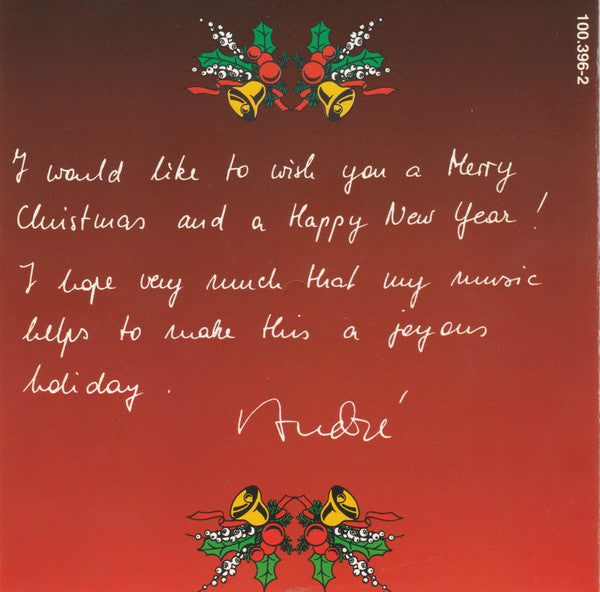 100.396-2
I would like to wish you a Merry
Christmas and a Happy New Year!
I hope very much that my music
helps to make this a joyous
holiday.
André